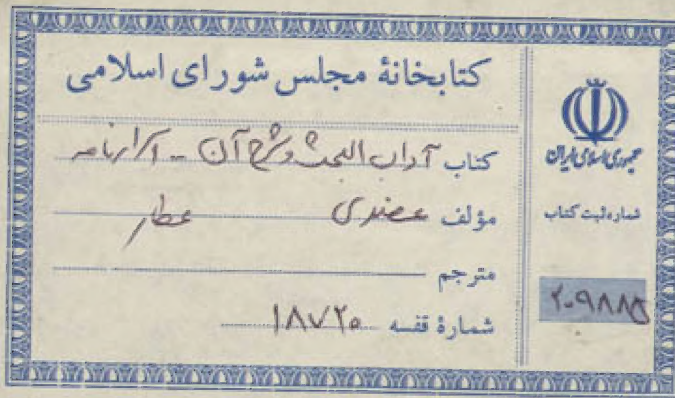 کتابخانهٔ مجلس شورای اسلامی
کتاب آداب البحث و شرح آن - اسرارنامه
مؤلف عضدی عطار
مترجم
شمارهٔ قفسه ۱۸۷۲۵
جمهوری اسلامی ایران
شماره ثبت کتاب
۲۰۹۸۸۵